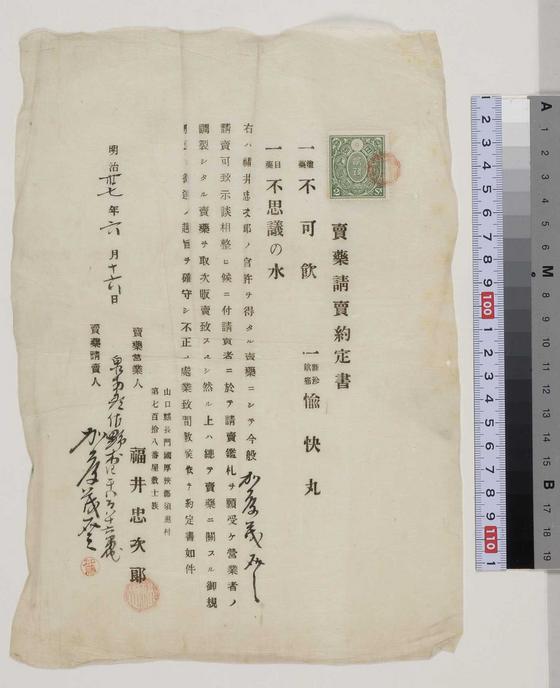 賣藥請賣約定書
一黴藥 不可飲
一 愉快丸
一目藥 不思議の水
右ハ福井忠次郎ノ官許ヲ得タル賣藥ニシテ今般加藤茂
請賣可致示談相整ヒ候ニ付請賣者ニ於テ請賣鑑札ヲ願受ケ營業者ノ
調製シタル賣藥ヲ取次販賣致スヘシ然ル上ハ總テ賣藥ニ關スル御規
ノ趣旨ヲ確守シ不正ノ處業致間敷候依テ約定書如件
明治卅七年六月十六日
山口縣長門國厚狹郡須惠村
第七百拾八番屋敷士族
賣藥營業人 福井忠次郎
賣藥請賣人
加藤茂